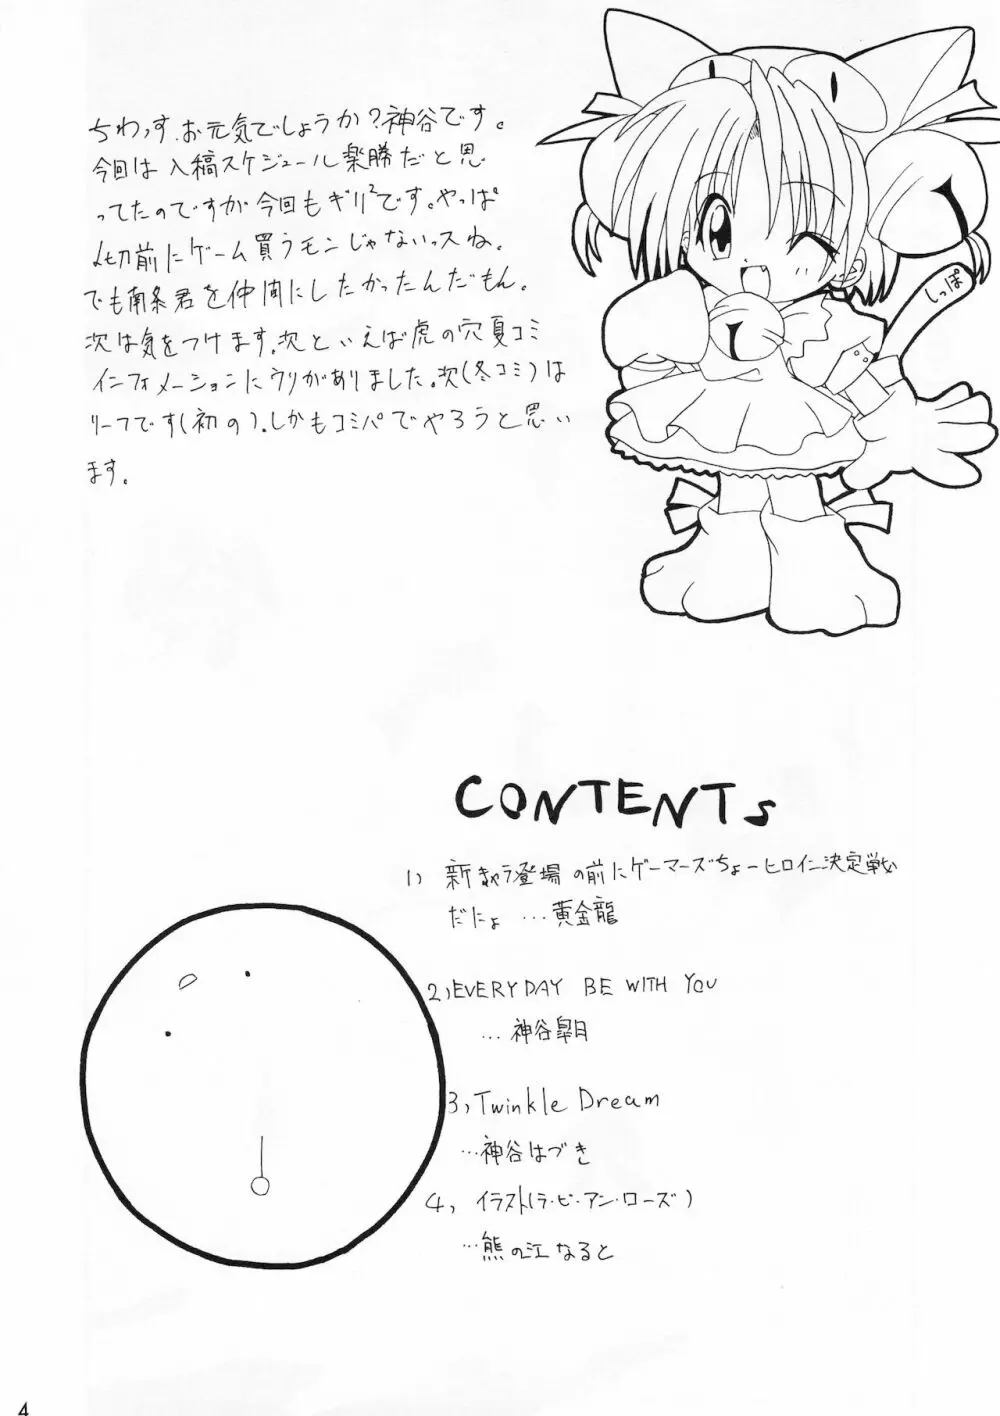 ちわっす.お元気でしょうか?神谷です。
今回は入稿スケジュール楽勝だと思
ってたのですが今回もギリ²です。やっぱ
〆切前にゲーム買うモンじゃないっスね。
でも南条君を仲間にしたかったんだもん。
次は気をつけます.次といえば虎の穴夏コミ
インフォメーションにウリがありました。次(冬コミ)は
リーフです(初の).しかもコミパでやろうと思い
ます。
しっぽ
CONTENTs
1) 新きゃラ登場の前にゲーマーズちょーヒロイン決定戦
だにょ …黄金龍
2,)EVERYDAY BE WITH YOU
…神谷皐月
3, Twinkle Dream
…神谷はづき
4, イラスト(ラ・ピ・アン・ローズ)
…熊の江なると
4